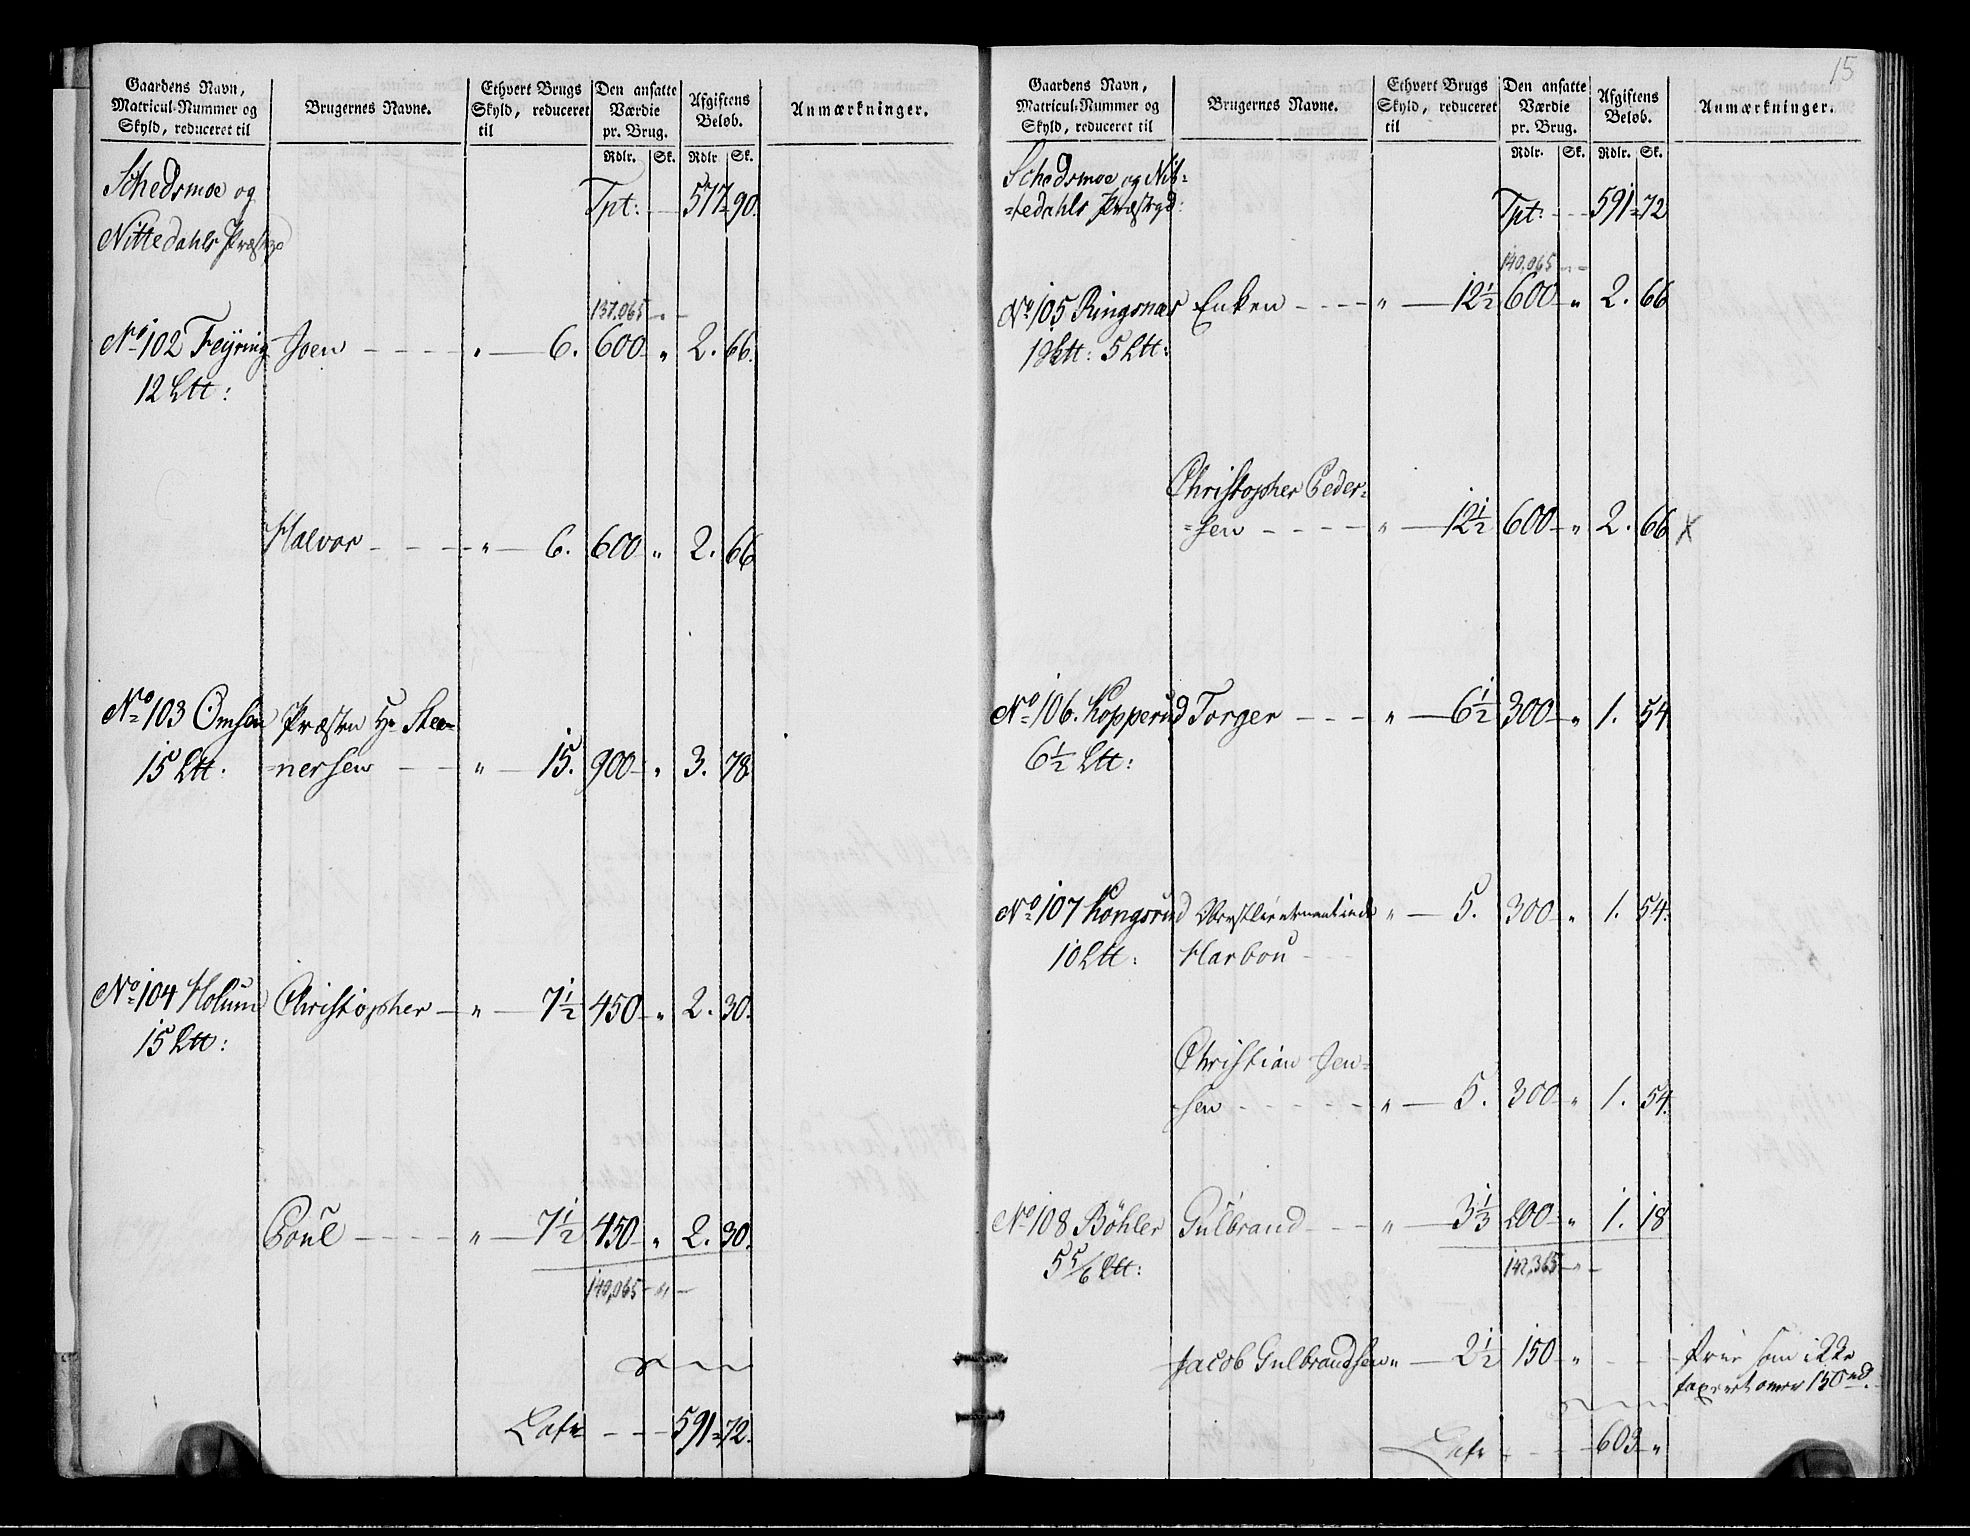 Gaardens Navn, Matricul-Nummer og Skyld, reduceret til
Brugernes Navne.
Ethvert Brugs Skyld, reduceret til
Den ansatte Værdie pr. Brug.
Afgiftens Beløb.
Anmærkninger.
Rdlr. Sk. Rdlr Sk.
Schedsmoe og Tpt: 577 90.
Nittedahls Præstgd
137,065
No 102 Feyring Joen " 6. 600 " 2. 66.
12 Ltt:
Halvor " 6. 600 " 2. 66
No 103 Omsen Præsten Hr Stee=
15 Ltt. =nersen " 15. 900 " 3. 78
No 104 Holum Christopher " 7½ 450 " 2. 30.
15 Ltt:
Poul " 7½ 450 " 2. 30.
140,065 "
Latr 591 72.
15
Gaardens Navn, Matricul-Nummer og Skyld, reduceret til
Brugernes Navne.
Ethvert Brugs Skyld, reduceret til
Den ansatte Værdie pr. Brug.
Afgiftens Beløb.
Anmærkninger.
Rdlr. Sk. Rdlr. Sk.
Schedsmoe og Nit=
=tedahls Præstgd: Tpt: 591 72
140,065
No 105 Ringsnæs Enken " 12½ 600 " 2. 66
1 Sktt: 5 Ltt:
Christopher Peder=
=sen " 12½ 600 " 2. 66 X
No 106. Kopperud Torger " 6½ 300 " 1. 54
6½ Ltt:
No 107 Kongsrud Obrystlieutnantinde " 5. 300 " 1. 54.
10 Ltt: Harbou
Christian Jen=
=sen " 5. 300 " 1. 54.
No 108 Böhler Gulbrand " 3⅓ 200 " 1. 18
5 5/6 Ltt: 142,365
Jacob Gulbrandsen " 2½ 150 " frie som ikke
taxeret over 150 rd.
Latr 603 "